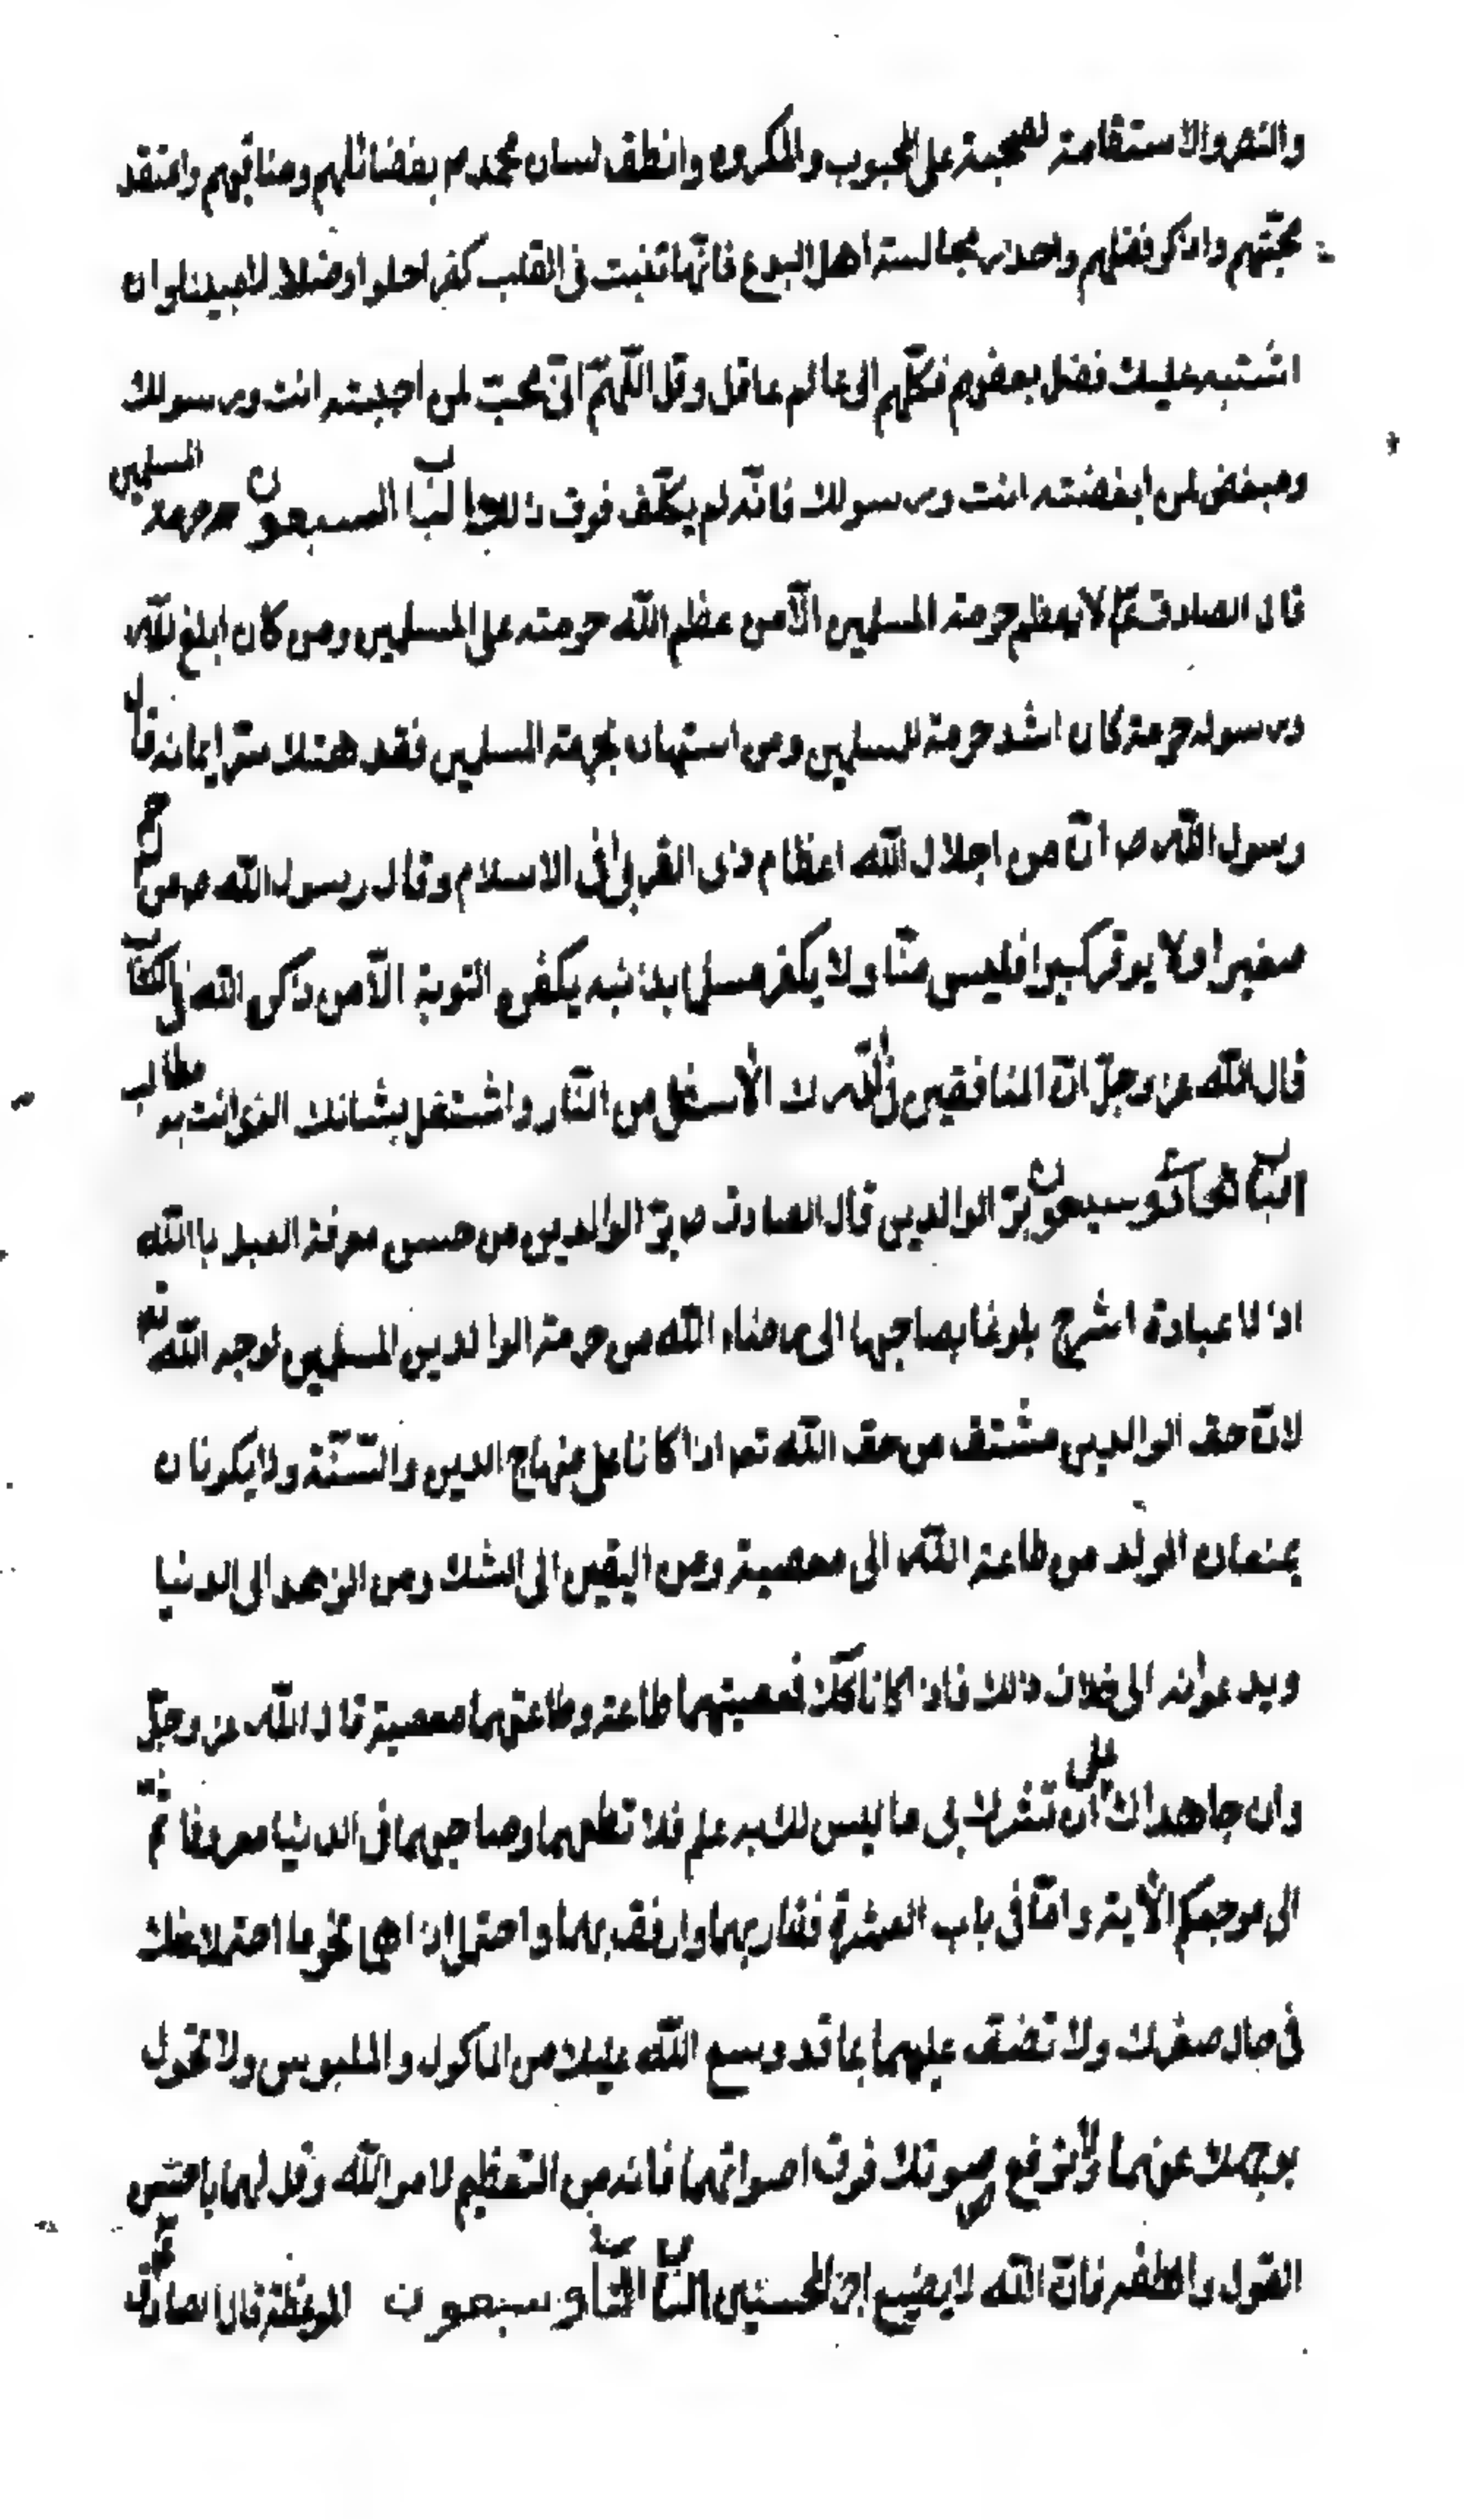 والنصر والاستقامة لصحبته على المحبوب والمكروه وانطق لسان محمد ص بفضائلهم ومناقبهم واعتقد
محبتهم واذكر فضلهم واحذر مجالسة اهل البدع فانها تنبت في القلب كفرا وضلالا مبينا وان
اشتبه عليك فضل بعضهم فكلهم الى عالم عاقل وقل اللهم اني محب لمن احببته انت ورسولك
ومبغض لمن ابغضته انت ورسولك فانه لم يكلف فوق ذلك الباب السبعون حرمة المسلمين
قال الصادق ع لا يعظم حرمة المسلمين الا من عظم الله حرمته على المسلمين ومن كان ابلغ لله
ورسوله حرمة كان اشد حرمة للمسلمين ومن استهان بحرمة المسلمين فقد هتك ستر ايمانه قال
رسول الله ص ان من اجلال الله اعظام ذي القربى في الاسلام وقال رسول الله ص من لم يرحم
صغيرا ولا يوقر كبيرا فليس منا ولا يكفر مسلم بذنبه يكفره التوبة الا من ذكر الله في الكتاب
قال الله عز وجل ان المنافقين في الدرك الاسفل من النار واشتغل بشانك الذي انت به مطالب
الباب الحادي وسبعون بر الوالدين قال الصادق ص بر الوالدين من حسن معرفة العبد بالله
اذ لا عبادة اسرع بلوغا بصاحبها الى رضاء الله من حرمة الوالدين المسلمين لوجه الله تع
لان حق الوالدين مشتق من حق الله تع اذا كانا على منهاج الدين والسنة ولا يكونان
يمنعان الولد من طاعة الله الى معصية ومن اليقين الى الشك ومن الزهد الى الدنيا
ويدعوانه الى خلاف ذلك فاذا كانا كذلك فمعصيتهما طاعة وطاعتهما معصية قال الله عز وجل
وان جاهداك على ان تشرك بي ما ليس لك به علم فلا تطعهما وصاحبهما في الدنيا معروفا ثم
الي مرجعكم الاية واما في باب العشرة فقاربهما وارفق بهما واحتمل اذاهما نحو ما احتملا عنك
في حال صغرك ولا تضيق عليهما بما قد وسع الله عليك من الماكول والملبوس ولا تحول
بوجهك عنهما ولا ترفع صوتك فوق اصواتهما فانه من التعظيم لامر الله وقل لهما باحسن
القول والطفه فان الله لا يضيع اجر المحسنين الباب الثاني وسبعون الموعظة قال الصادق